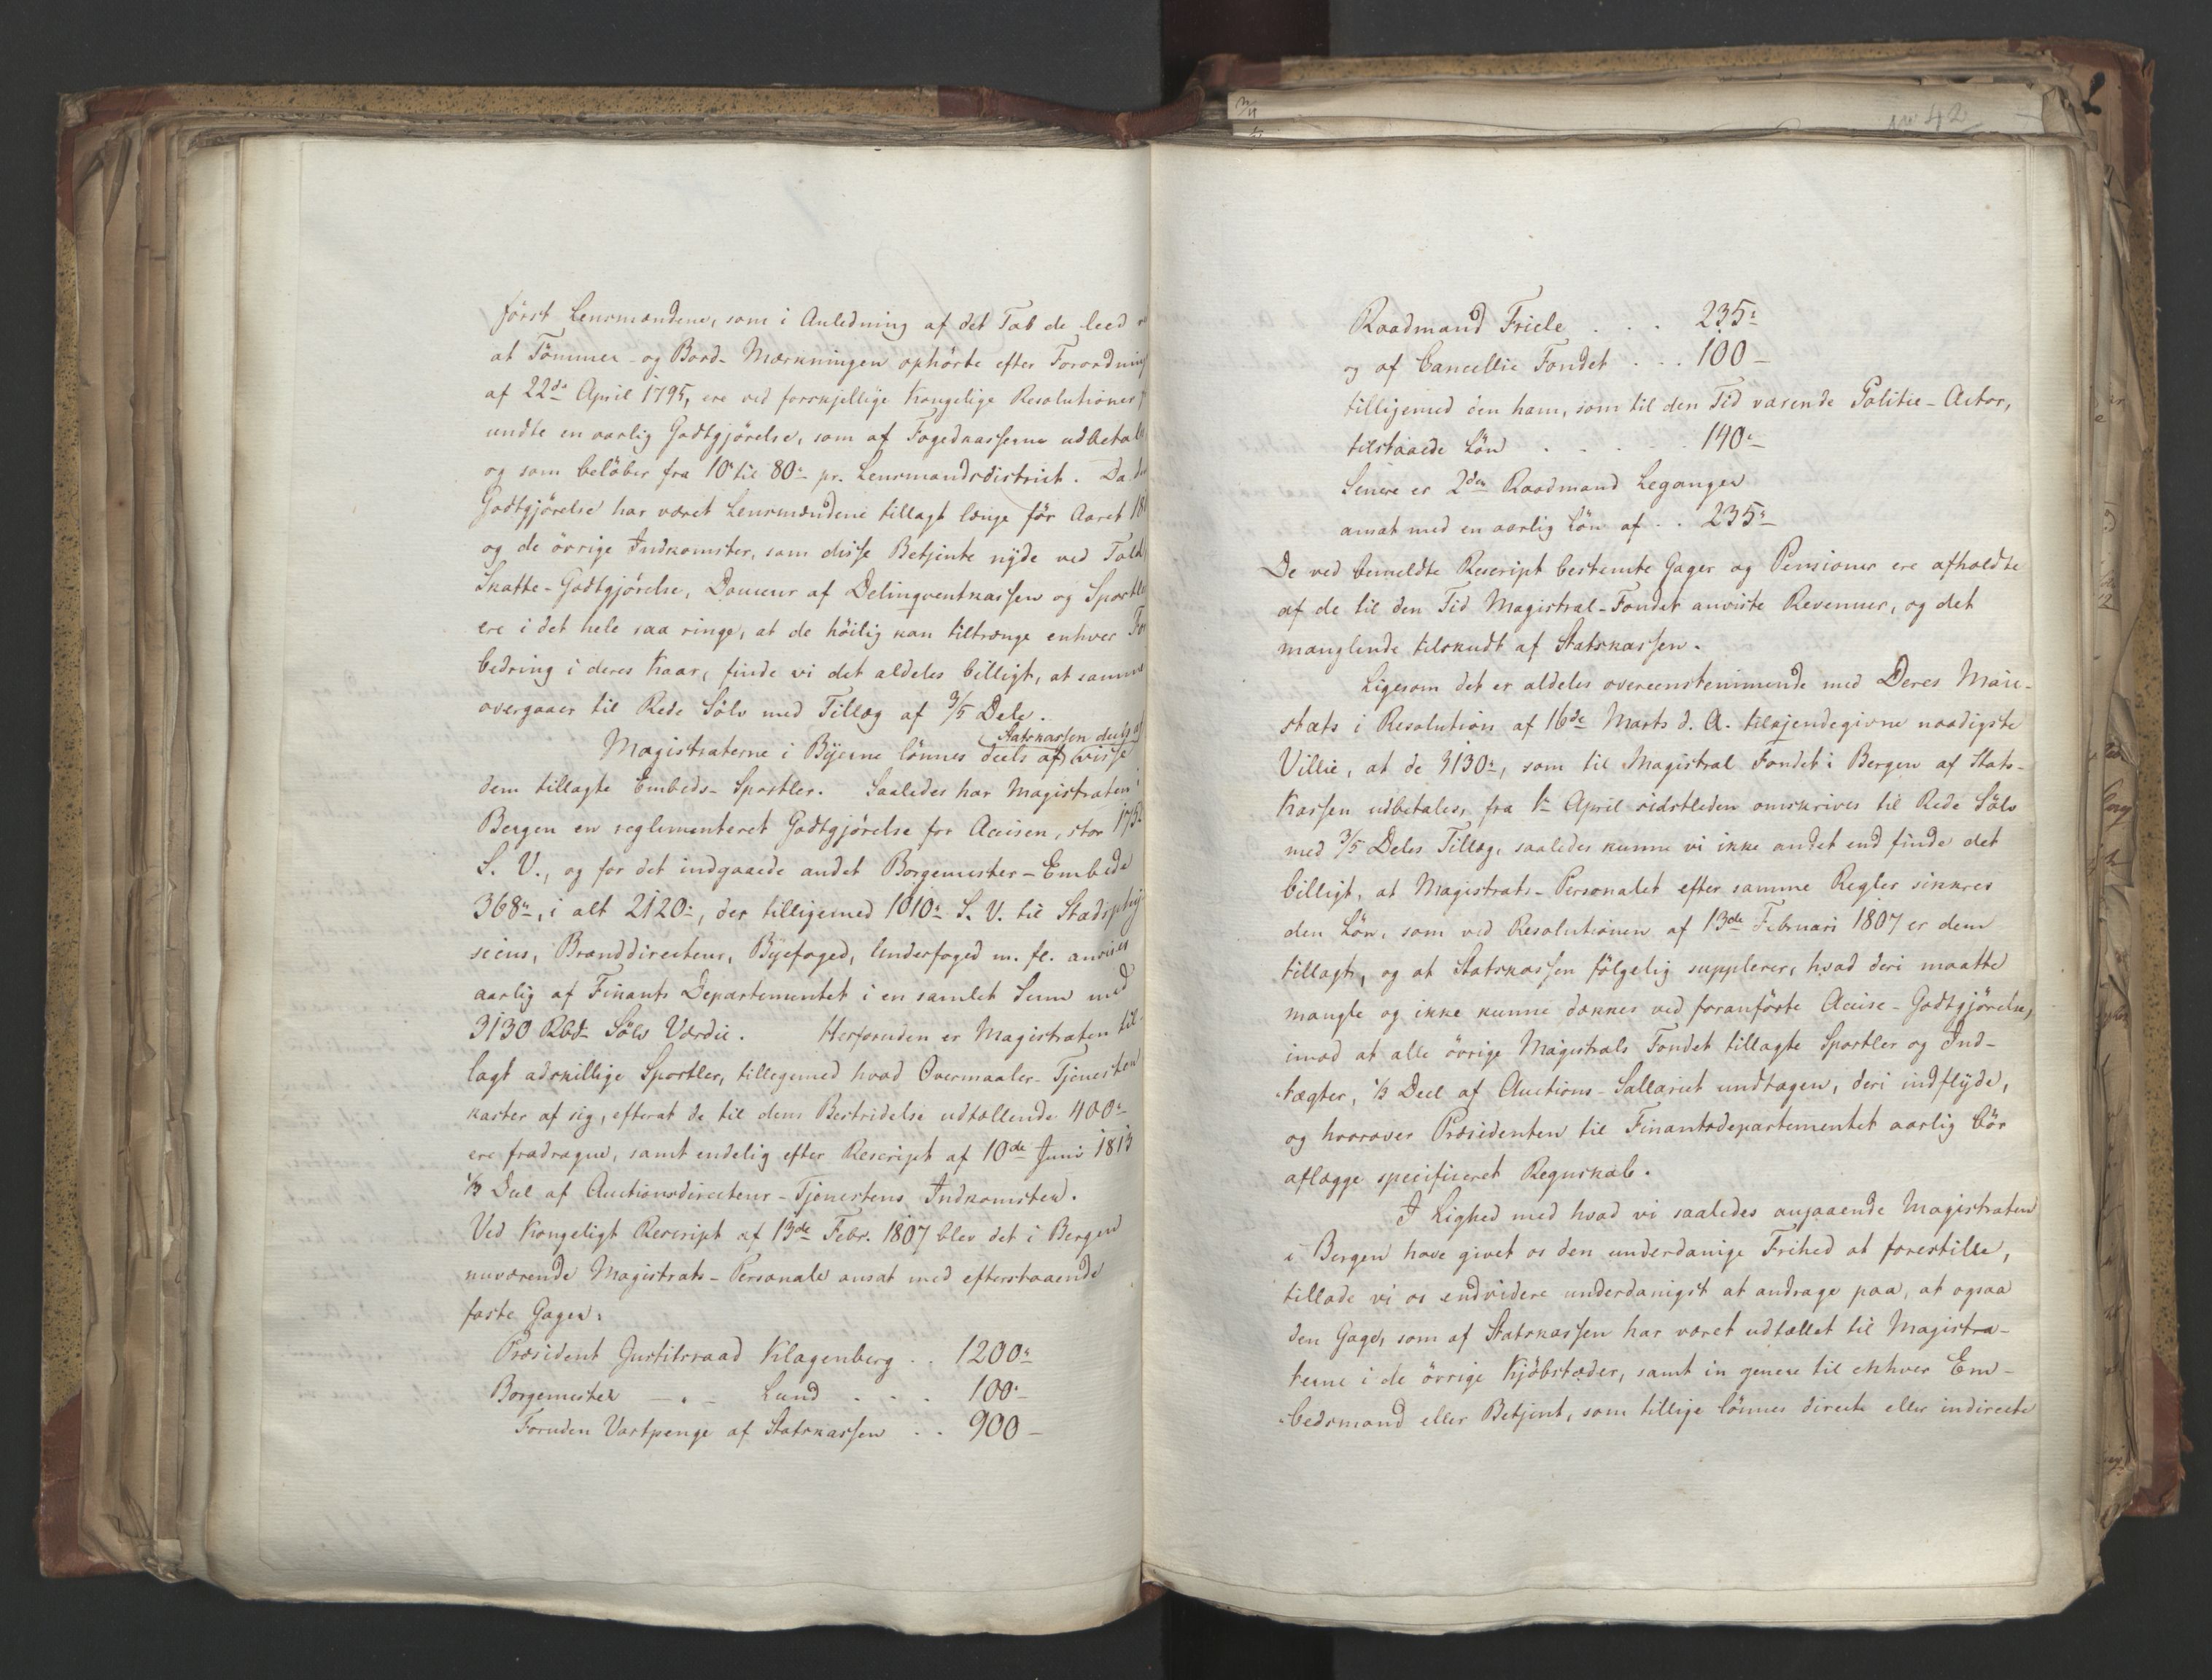 först Lensmændene, som i Anledning af det Tab de leed
at Tömmer- og Bord-Mærkningen ophörte efter Forordning
af 22de April 1795, ere ved forskjellige Kongelige Resolutioner
undte en aarlig Godtgjörelse, som af Fogedkasserne udbetales
og som belöber fra 10 til 80 pr. Lensmandsdistrict. Da
Godtgjörelse har været Lensmændene tillagt længe för Aaret
og de övrige Indkomster, som disse Betjente nyde ved Told,
Skatte-Godtgjörelse, Douceur af Delinqventkassen og Sportler
ere i det hele saa ringe, at de höilig kan tiltrænge enhver For
bedring i deres Kaar, finde vi det aldeles billigt, at samme
overgaaer til Rede Sölv med Tillæg af 3/5 Dele.
Statskassen deels af
Magistraterne i Byerne lönnes deels af visse
dem tillagte Embeds-Sportler. Saaledes har Magistraten i
Bergen en reglementeret Godtgjörelse for Accisen, stor 1752
S. V., og for det indgaaede andet Borgemester-Embede
368, i alt 2120, der tilligemed 1010 S. V. til Stadsphy
sicus, Branddirecteur, Byefoged, Underfoged m. fl. anvises
aarlig af Finants Departementet i en samlet Sum med
3130 Rbd Sölv Værdie. Herforuden er Magistraten til-
lagt adskillige Sportler, tilligemed hvad Overmaaler-Tjenesten
kaster af sig, efterat de til dens Bestridelse udtællende 400
ere fradragne, samt endelig efter Rescript af 10de Juni 1813
1/3 Deel af Auctionsdirecteur-Tjenestens Indkomster.
Ved Kongeligt Rescript af 13de Febr. 1807 blev det i Bergen
nuværende Magistrats-Personale ansat med efterstaaende
faste Gager:
Præsident Justitsraad Klagenberg . . 1200
Borgemester — . — Lund . . . 100
Foruden Vartpenge af Statskassen . . 900 –
No 42
Raadmand Friele . . . 235
og af Cancellie Fondet . . . 100 –
tilligemed den ham, som til den Tid værende Politie-Actor,
tilstaaede Lön . . . . . 140
Senere er 2den Raadmand Leganger
ansat med en aarlig Lön af . . 235
De ved bemeldte Rescript bestemte Gager og Pensioner ere afholdte
af de til den Tid Magistrat-Fondet anviste Revenuer, og det
manglende tilskudt af Statskassen.
Ligesom det er aldeles overeenstemmende med Deres Maje-
stæts i Resolution af 16de Marts d. A. tilkjendegivne naadigste
Villie, at de 3130, som til Magistrat Fondet i Bergen af Stats-
Kassen udbetales, fra 1 April sidstleden omskrives til Rede Sölv
med 3/5 Deles Tillæg, saaledes kunne vi ikke andet end finde det
billigt, at Magistrats-Personalet efter samme Regler sikkres
den Lön, som ved Resolutionen af 13de Februari 1807 er dem
tillagt, og at Statskassen fölgelig supplerer, hvad deri maatte
mangle og ikke kunne dækkes ved foranförte Accise-Godtgjörelse,
imod at alle övrige Magistrats Fondet tillagte Sportler og Ind-
tægter, 1/3 Deel af Auctions-Sallariet undtagen, deri indflyde,
og hvorover Præsidenten til Finantsdepartementet aarlig bör
aflægge specificeret Regnskab.
I Lighed med hvad vi saaledes angaaende Magistraten
i Bergen have givet os den underdanige Frihed at forestille,
tillade vi os endvidere underdanigst at andrage paa, at ogsaa
den Gage, som af Statskassen har været udtællet til Magistra-
terne i de övrige Kjöbstæder, samt in genere til enhver Em-
bedsmand eller Betjent, som tillige lönnes directe eller indirecte